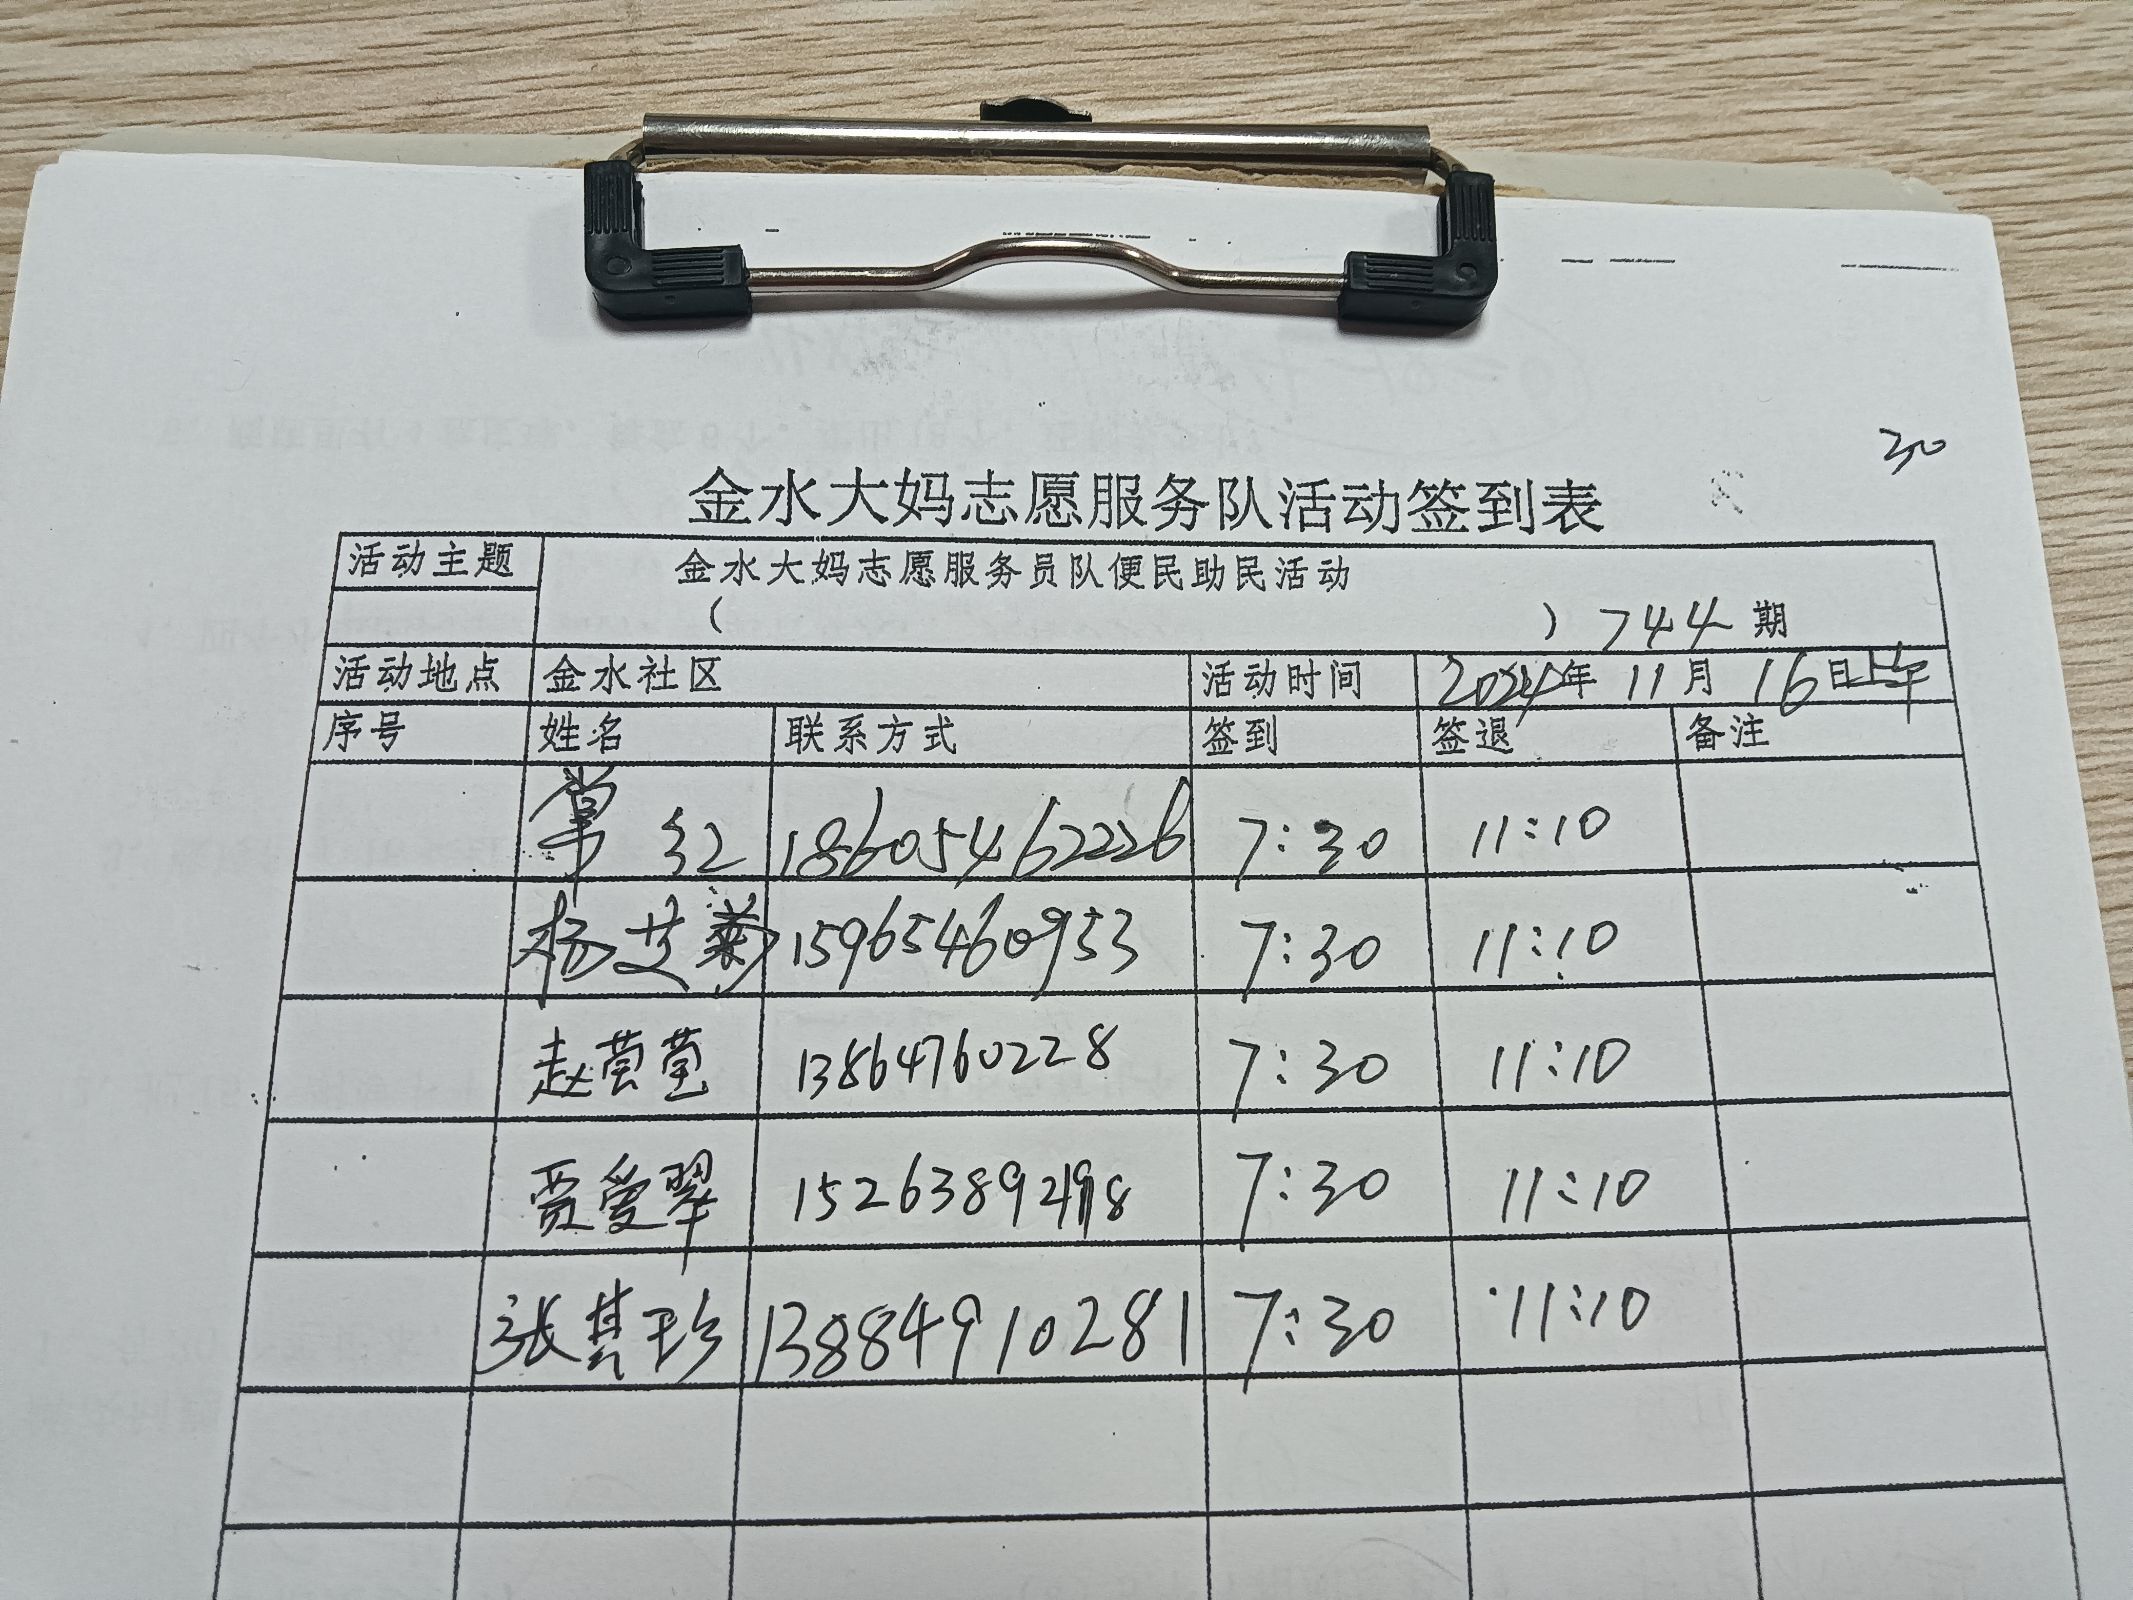 30
金水大妈志愿服务队活动签到表
活动主题 金水大妈志愿服务员队便民助民活动
( ) 744期
活动地点 金水社区 活动时间 2024年11月16日上午
序号 姓名 联系方式 签到 签退 备注
常红 18605462226 7:30 11:10
杨艾菊 15965460953 7:30 11:10
赵莹莹 13864760228 7:30 11:10
贾爱翠 15263892498 7:30 11:10
张其珍 13884910281 7:30 11:10